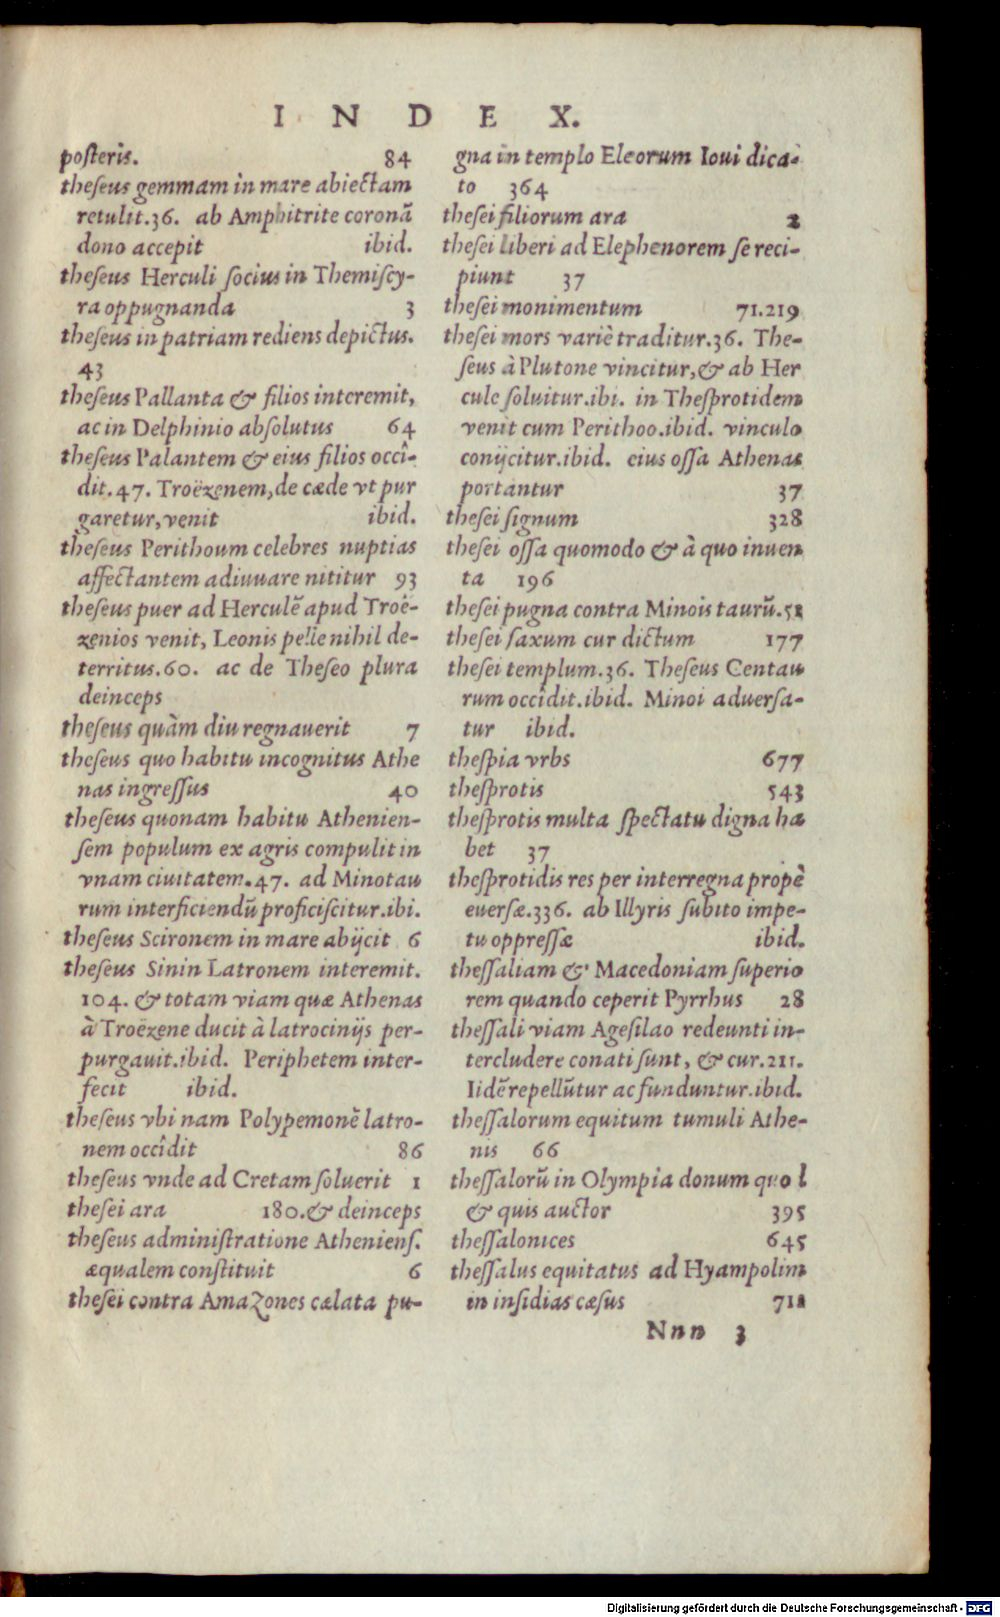 INDEX.
posteris. 84
theseus gemmam in mare abiectam
retulit.36. ab Amphitrite coronā
dono accepit ibid.
theseus Herculi socius in Themiscy-
ra oppugnanda 3
theseus in patriam rediens depictus.
43
theseus Pallanta & filios interemit,
ac in Delphinio absolutus 64
theseus Palantem & eius filios occî-
dit.47. Troëzenem, de cæde vt pur
garetur, venit ibid.
theseus Perithoum celebres nuptias
affectantem adiuuare nititur 93
theseus puer ad Herculē apud Troë-
zenios venit, Leonis pelle nihil de-
territus.60. ac de Theseo plura
deinceps
theseus quàm diu regnauerit 7
theseus quo habitu incognitus Athe
nas ingressus 40
theseus quonam habitu Athenien-
sem populum ex agris compulit in
vnam ciuitatem.47. ad Minotau
rum interficiendū proficiscitur.ibi.
theseus Scironem in mare abijcit 6
theseus Sinin Latronem interemit.
104. & totam viam quæ Athenas
à Troëzene ducit à latrocinijs per-
purgauit.ibid. Periphetem inter-
fecit ibid.
theseus vbi nam Polypemonē latro-
nem occîdit 86
theseus vnde ad Cretam soluerit 1
thesei ara 180.& deinceps
theseus administratione Atheniens.
æqualem constituit 6
thesei contra Amazones cælata pu-
gna in templo Eleorum Ioui dica-
to 364
thesei filiorum ara 2
thesei liberi ad Elephenorem se reci-
piunt 37
thesei monimentum 71.219
thesei mors variè traditur.36. The-
seus à Plutone vincitur, & ab Her
cule soluitur.ibi. in Thesprotidem
venit cum Perithoo.ibid. vinculo
conijcitur.ibid. eius ossa Athenas
portantur 37
thesei signum 328
thesei ossa quomodo & à quo inuen
ta 196
thesei pugna contra Minois taurū.52
thesei saxum cur dictum 177
thesei templum.36. Theseus Centau
rum occîdit.ibid. Minoi aduersa-
tur ibid.
thespia vrbs 677
thesprotis 543
thesprotis multa spectatu digna ha
bet 37
thesprotidis res per interregna propè
euersæ.336. ab Illyris subito impe-
tu oppressæ ibid.
thessaliam & Macedoniam superio
rem quando ceperit Pyrrhus 28
thessali viam Agesilao redeunti in-
tercludere conati sunt, & cur.211.
Iidē repellūtur ac funduntur.ibid.
thessalorum equitum tumuli Athe-
nis 66
thessalorū in Olympia donum quod
& quis auctor 395
thessalonices 645
thessalus equitatus ad Hyampolim
in insidias cæsus 711
Nnn 3
Digitalisierung gefördert durch die Deutsche Forschungsgemeinschaft - DFG